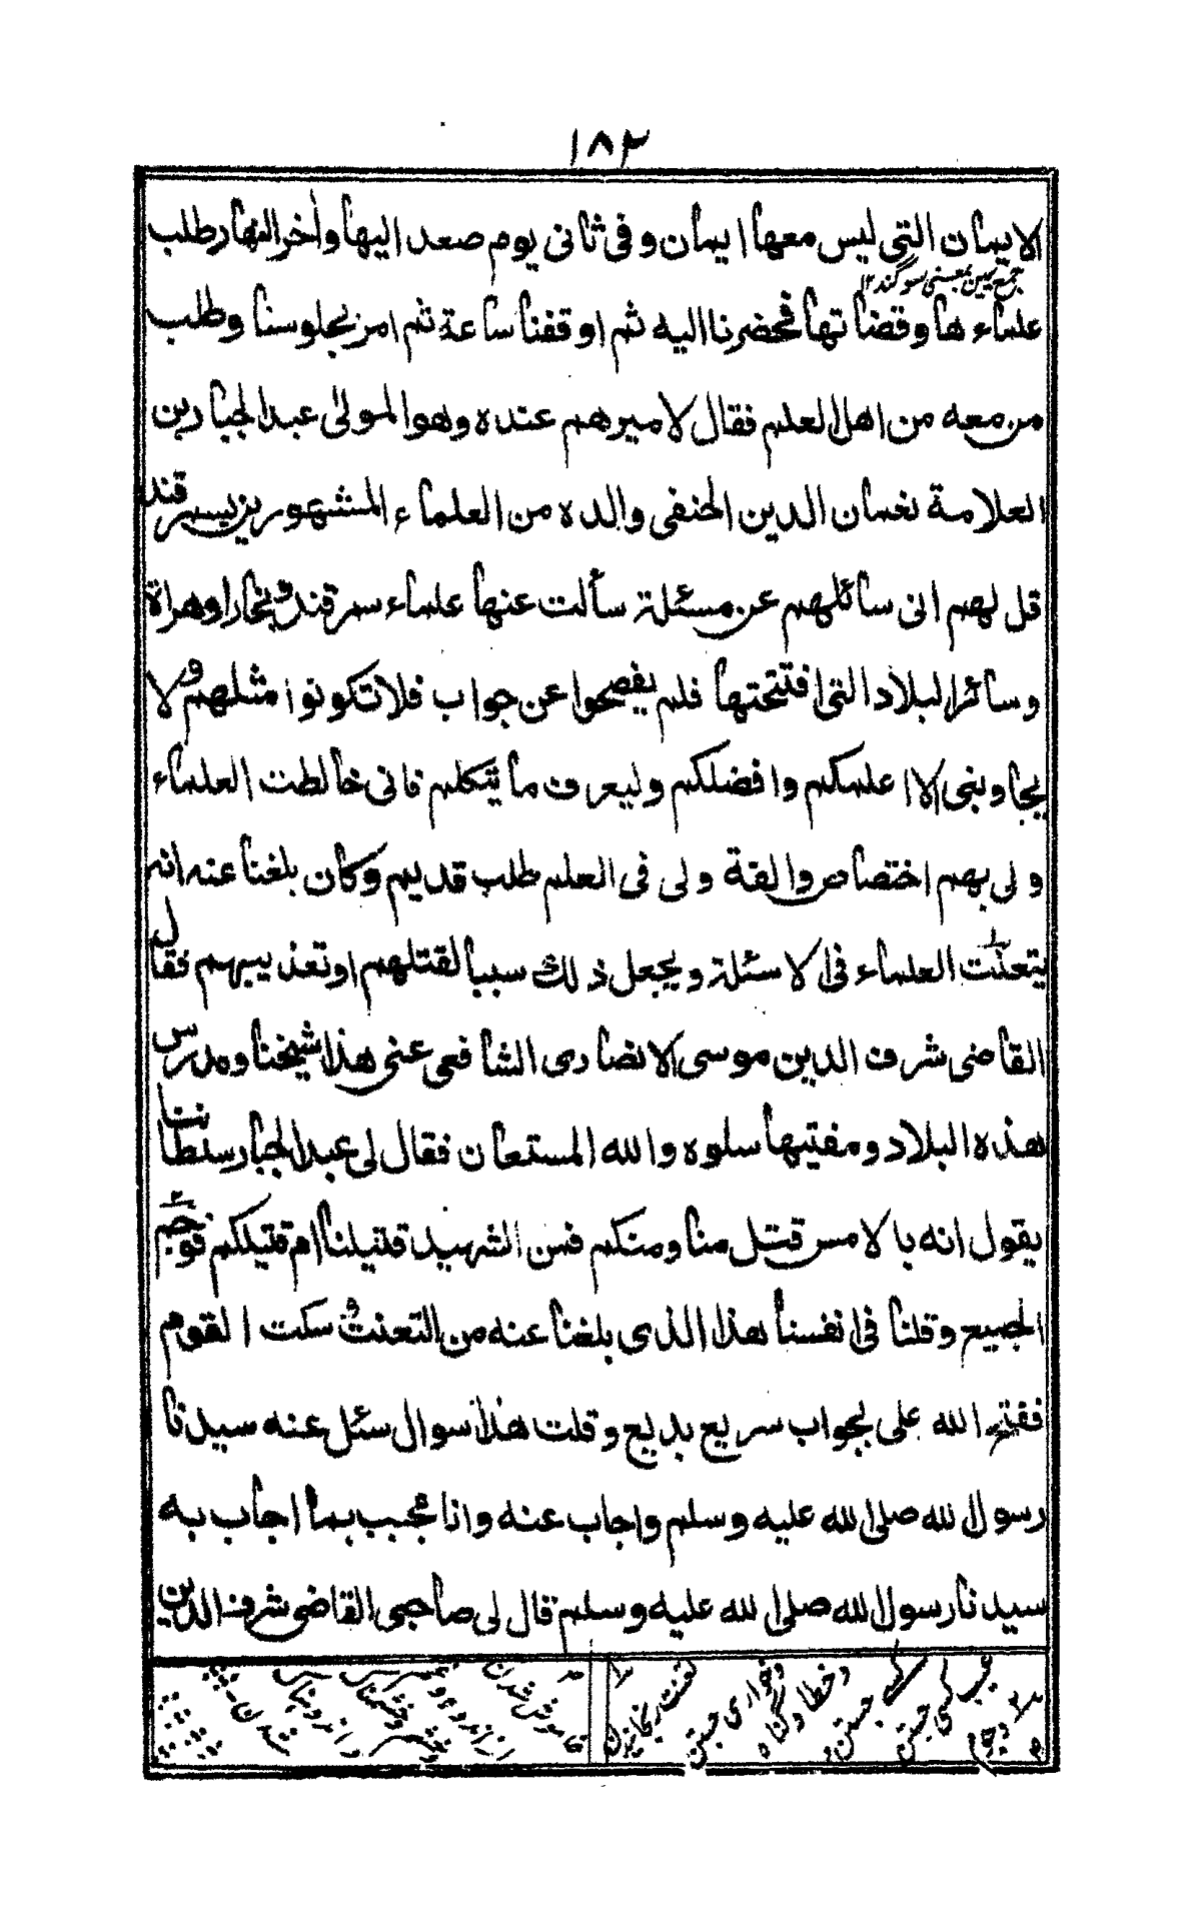 ١٨٣
الايمان التى ليس معها ايمان وفى ثانى يوم صعد اليها وأخر النهار طلب
جمع يمين بمعنى سوگند ١٢
علماءها وقضاتها فحضرنا اليه ثم اوقفنا ساعة ثم امر بجلوسنا وطلب
من معه من اهل العلم فقال لاميرهم عنده وهو المولى عبد الجبار بن
العلامة نعمان الدين الحنفى والده من العلماء المشهورين بسمرقند
قل لهم انى سائلهم عن مسئلة سألت عنها علماء سمرقند وبخارا وهراة
وسائر البلاد التى افتتحتها فلم يفصحوا عن جواب فلا تكونوا مثلهم ولا
يجاوبنى الا اعلمكم وافضلكم وليعرف ما يتكلم فانى خالطت العلماء
ولى بهم اختصاص والفة ولى فى العلم طلب قديم وكان بلغنا عنه انه
يتعنت العلماء فى الاسئلة ويجعل ذلك سببا لقتلهم او تعذيبهم فقال
القاضى شرف الدين موسى الانصارى الشافعى عنى هذا شيخنا ومدرس
هذه البلاد ومفتيها سلوه والله المستعان فقال لى عبد الجبار سلطاننا
يقول انه بالامس قتل منا ومنكم فمن الشهيد قتيلنا ام قتيلكم فوجم
الجميع وقلنا فى انفسنا هذا الذى بلغنا عنه من التعنت وسكت القوم
ففتح الله على بجواب سريع بديع وقلت هذا سوال سئل عنه سيدنا
رسول الله صلى الله عليه وسلم واجاب عنه وانا مجيب بما اجاب به
سيدنا رسول الله صلى الله عليه وسلم قال لى صاحبى القاضى شرف الدين
عيب كسى جستن
وخوارى جستن
خاموش شدن